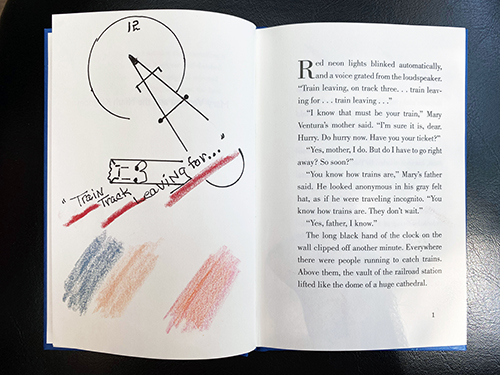 12
I-3
"Train
Track
Leaving for..."
Red neon lights blinked automatically,
and a voice grated from the loudspeaker.
"Train leaving, on track three. . . train leav-
ing for . . . train leaving . . ."
"I know that must be your train," Mary
Ventura's mother said. "I'm sure it is, dear.
Hurry. Do hurry now. Have you your ticket?"
"Yes, mother, I do. But do I have to go right
away? So soon?"
"You know how trains are," Mary's father
said. He looked anonymous in his gray felt
hat, as if he were traveling incognito. "You
know how trains are. They don't wait."
"Yes, father, I know."
The long black hand of the clock on the
wall clipped off another minute. Everywhere
there were people running to catch trains.
Above them, the vault of the railroad station
lifted like the dome of a huge cathedral.
1